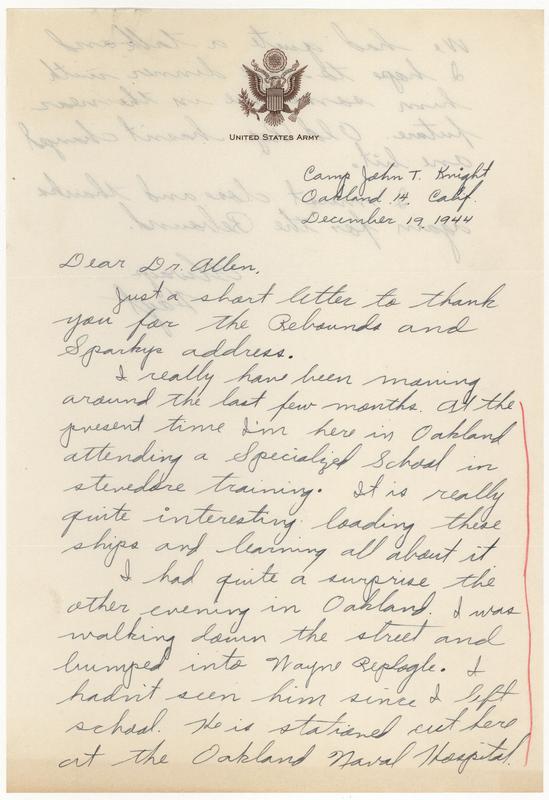 UNITED STATES ARMY
Camp John T. Knight
Oakland 14, Calif.
December 19, 1944
Dear Dr. Allen,
Just a short letter to thank
you for the Rebounds and
Sparkys address.
I really have been moving
around the last few months. At the
present time I'm here in Oakland
attending a Specialized School in
stevedore training. It is really
quite interesting loading these
ships and learning all about it
I had quite a surprise the
other evening in Oakland. I was
walking down the street and
bumped into Wayne Replogle. I
hadn't seen him since I left
school. He is stationed out here
at the Oakland Naval Hospital.